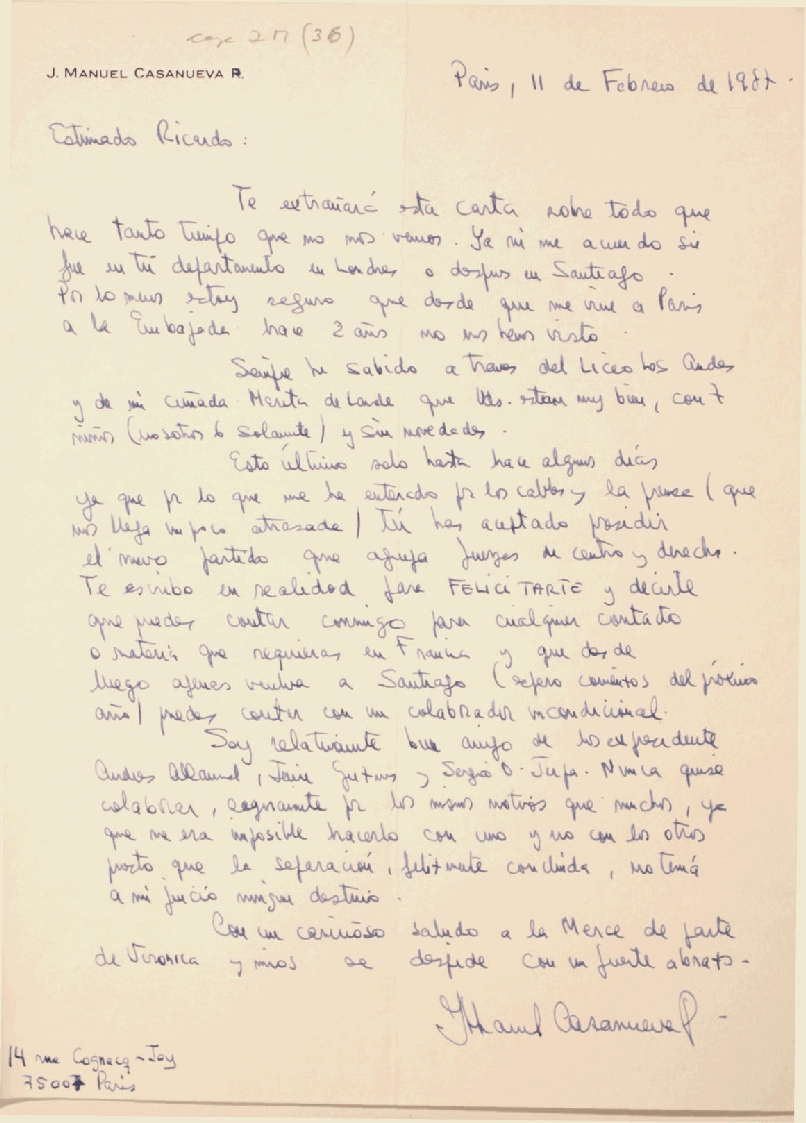 caja 27 (36)
J. MANUEL CASANUEVA R.
París, 11 de Febrero de 1987.
Estimado Ricardo:
Te extrañará esta carta sobre todo que
hace tanto tiempo que no nos vemos. Ya ni me acuerdo si
fue en tú departamento en Londres o despues en Santiago.
Por lo menos estoy seguro que desde que me vine a París
a la Embajada hace 2 años no nos hemos visto.
Siempre he sabido a traves del Liceo Los Andes
y de mi cuñada de Lande que Uds. estan muy bien, con 7
niños (nosotros 6 solamente) y sin novedades.
Esto último solo hasta hace algunos días
ya que por lo que me he enterado por los cables y la prensa (que
nos llega un poco atrasada) tú has aceptado presidir
el nuevo partido que agrupa fuerzas de centro y derecha.
Te escribo en realidad para FELICITARTE y decirte
que puedes contar conmigo para cualquier contacto
o materia que requieras en Francia y que desde
luego apenas vuelva a Santiago (espero comienzos del próximo
año) puedes contar con un colaborador incondicional.
Soy relativamente buen amigo de los expresidente
Andres Allamand, y Sergio O. Jarpa. Nunca quise
colaborar, seguramente por los mismos motivos que muchos, ya
que me era imposible hacerlo con uno y no con los otros
puesto que la separación, felizmente concluida, no tenía
a mi juicio ningun destino.
Con un cariñoso saludo a la Merce de parte
de Veronica y mios se despide con un fuerte abrazo-
JManuel Casanueva R
14 rue Cognacq-Jay
75007 París